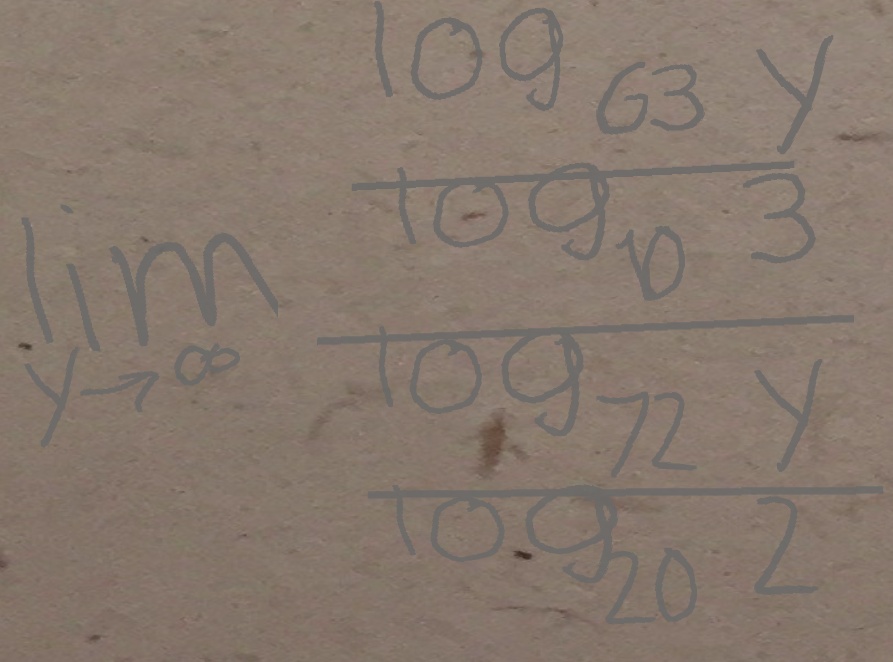 \lim_{y \to \infty} \frac{\frac{\log_{63} y}{\log_{10} 3}}{\frac{\log_{72} y}{\log_{20} 2}}